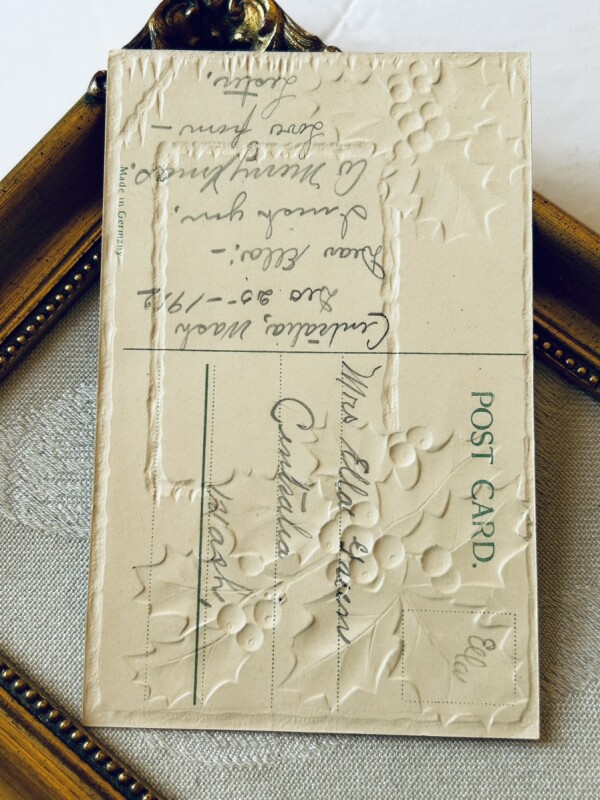 Centralia, Wash
Dec 25 - 1912
Dear Ella:-
I wish you,
a Merry Xmas.
Love from -
Lester.
Made in Germany
POST CARD.
Ella
Mrs Ella
Centralia
Wash,